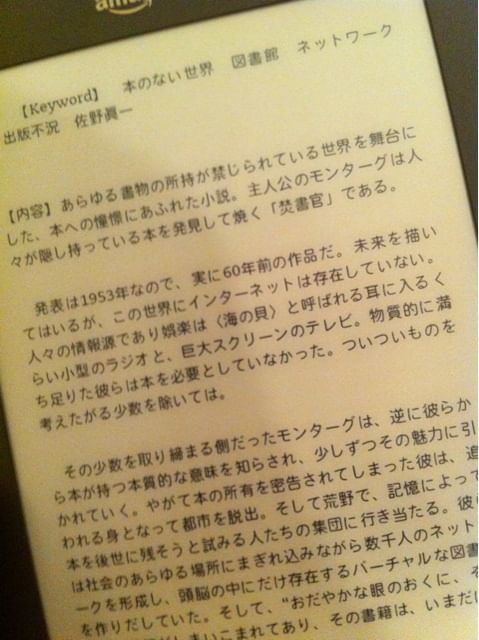 ama
【Keyword】 本のない世界 図書館 ネットワーク
出版不況 佐野眞一
【内容】あらゆる書物の所持が禁じられている世界を舞台に
した、本への憧憬にあふれた小説。主人公のモンターグは人
々が隠し持っている本を発見して焼く「焚書官」である。
発表は1953年なので、実に60年前の作品だ。未来を描い
てはいるが、この世界にインターネットは存在していない。
人々の情報源であり娯楽は〈海の貝〉と呼ばれる耳に入るく
らい小型のラジオと、巨大スクリーンのテレビ。物質的に満
ち足りた彼らは本を必要としていなかった。ついついものを
考えたがる少数を除いては。
その少数を取り締まる側だったモンターグは、逆に彼らか
ら本が持つ本質的な意味を知らされ、少しずつその魅力に引
かれていく。やがて本の所有を密告されてしまった彼は、追
われる身となって都市を脱出。そして荒野で、記憶によって
本を後世に残そうと試みる人たちの集団に行き当たる。彼ら
は社会のあらゆる場所にまぎれ込みながら数千人のネット
ークを形成し、頭脳の中にだけ存在するバーチャルな図書
を作りだしていた。そして、“おだやかな眼のおくに、そ
しまいこまれてあり、その書籍は、いまだに